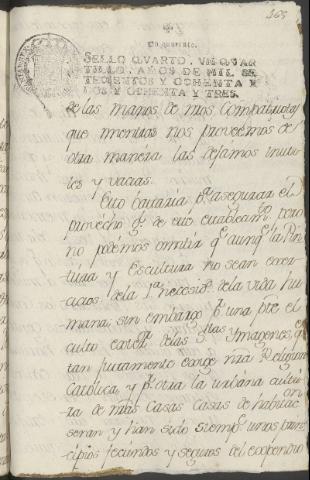 Un quartillo.
SELLO QVARTO, VN QVAR
TILLO, AÑOS DE MIL SE
TECIENTOS Y OCHENTA Y
DOS Y OCHENTA Y TRES.
de las manos de nros Compatriotas
que mientras nos proveemos de
otra manera las dejamos inuti
les y vacias.
Esto bastaria pa. asegurar el
provecho qe. de este establecimto. pero
no podemos omitir qe. aunqe. la Pin
tura y Escultura no sean exer
cicios de la 1a. necesidd. de la vida hu
mana, sin embargo pr. una pte el
culto de las Stas Ymagenes, qe.
tan justamente exige nra Religion
Catolica, y pr. otra la urbana cultu
ra de nras Casas Casas de habitacon
seran y han sido siempre unos prin
cipios fecundos y seguros del expendio